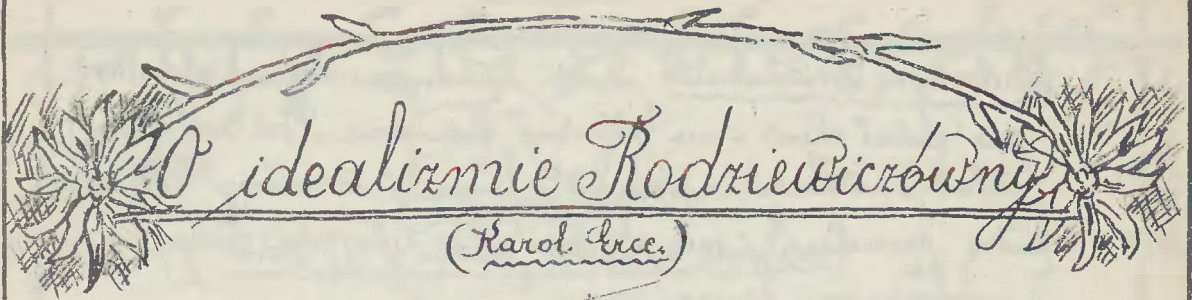 O idealizmie Rodziewiczówny
(Karol Erce.)